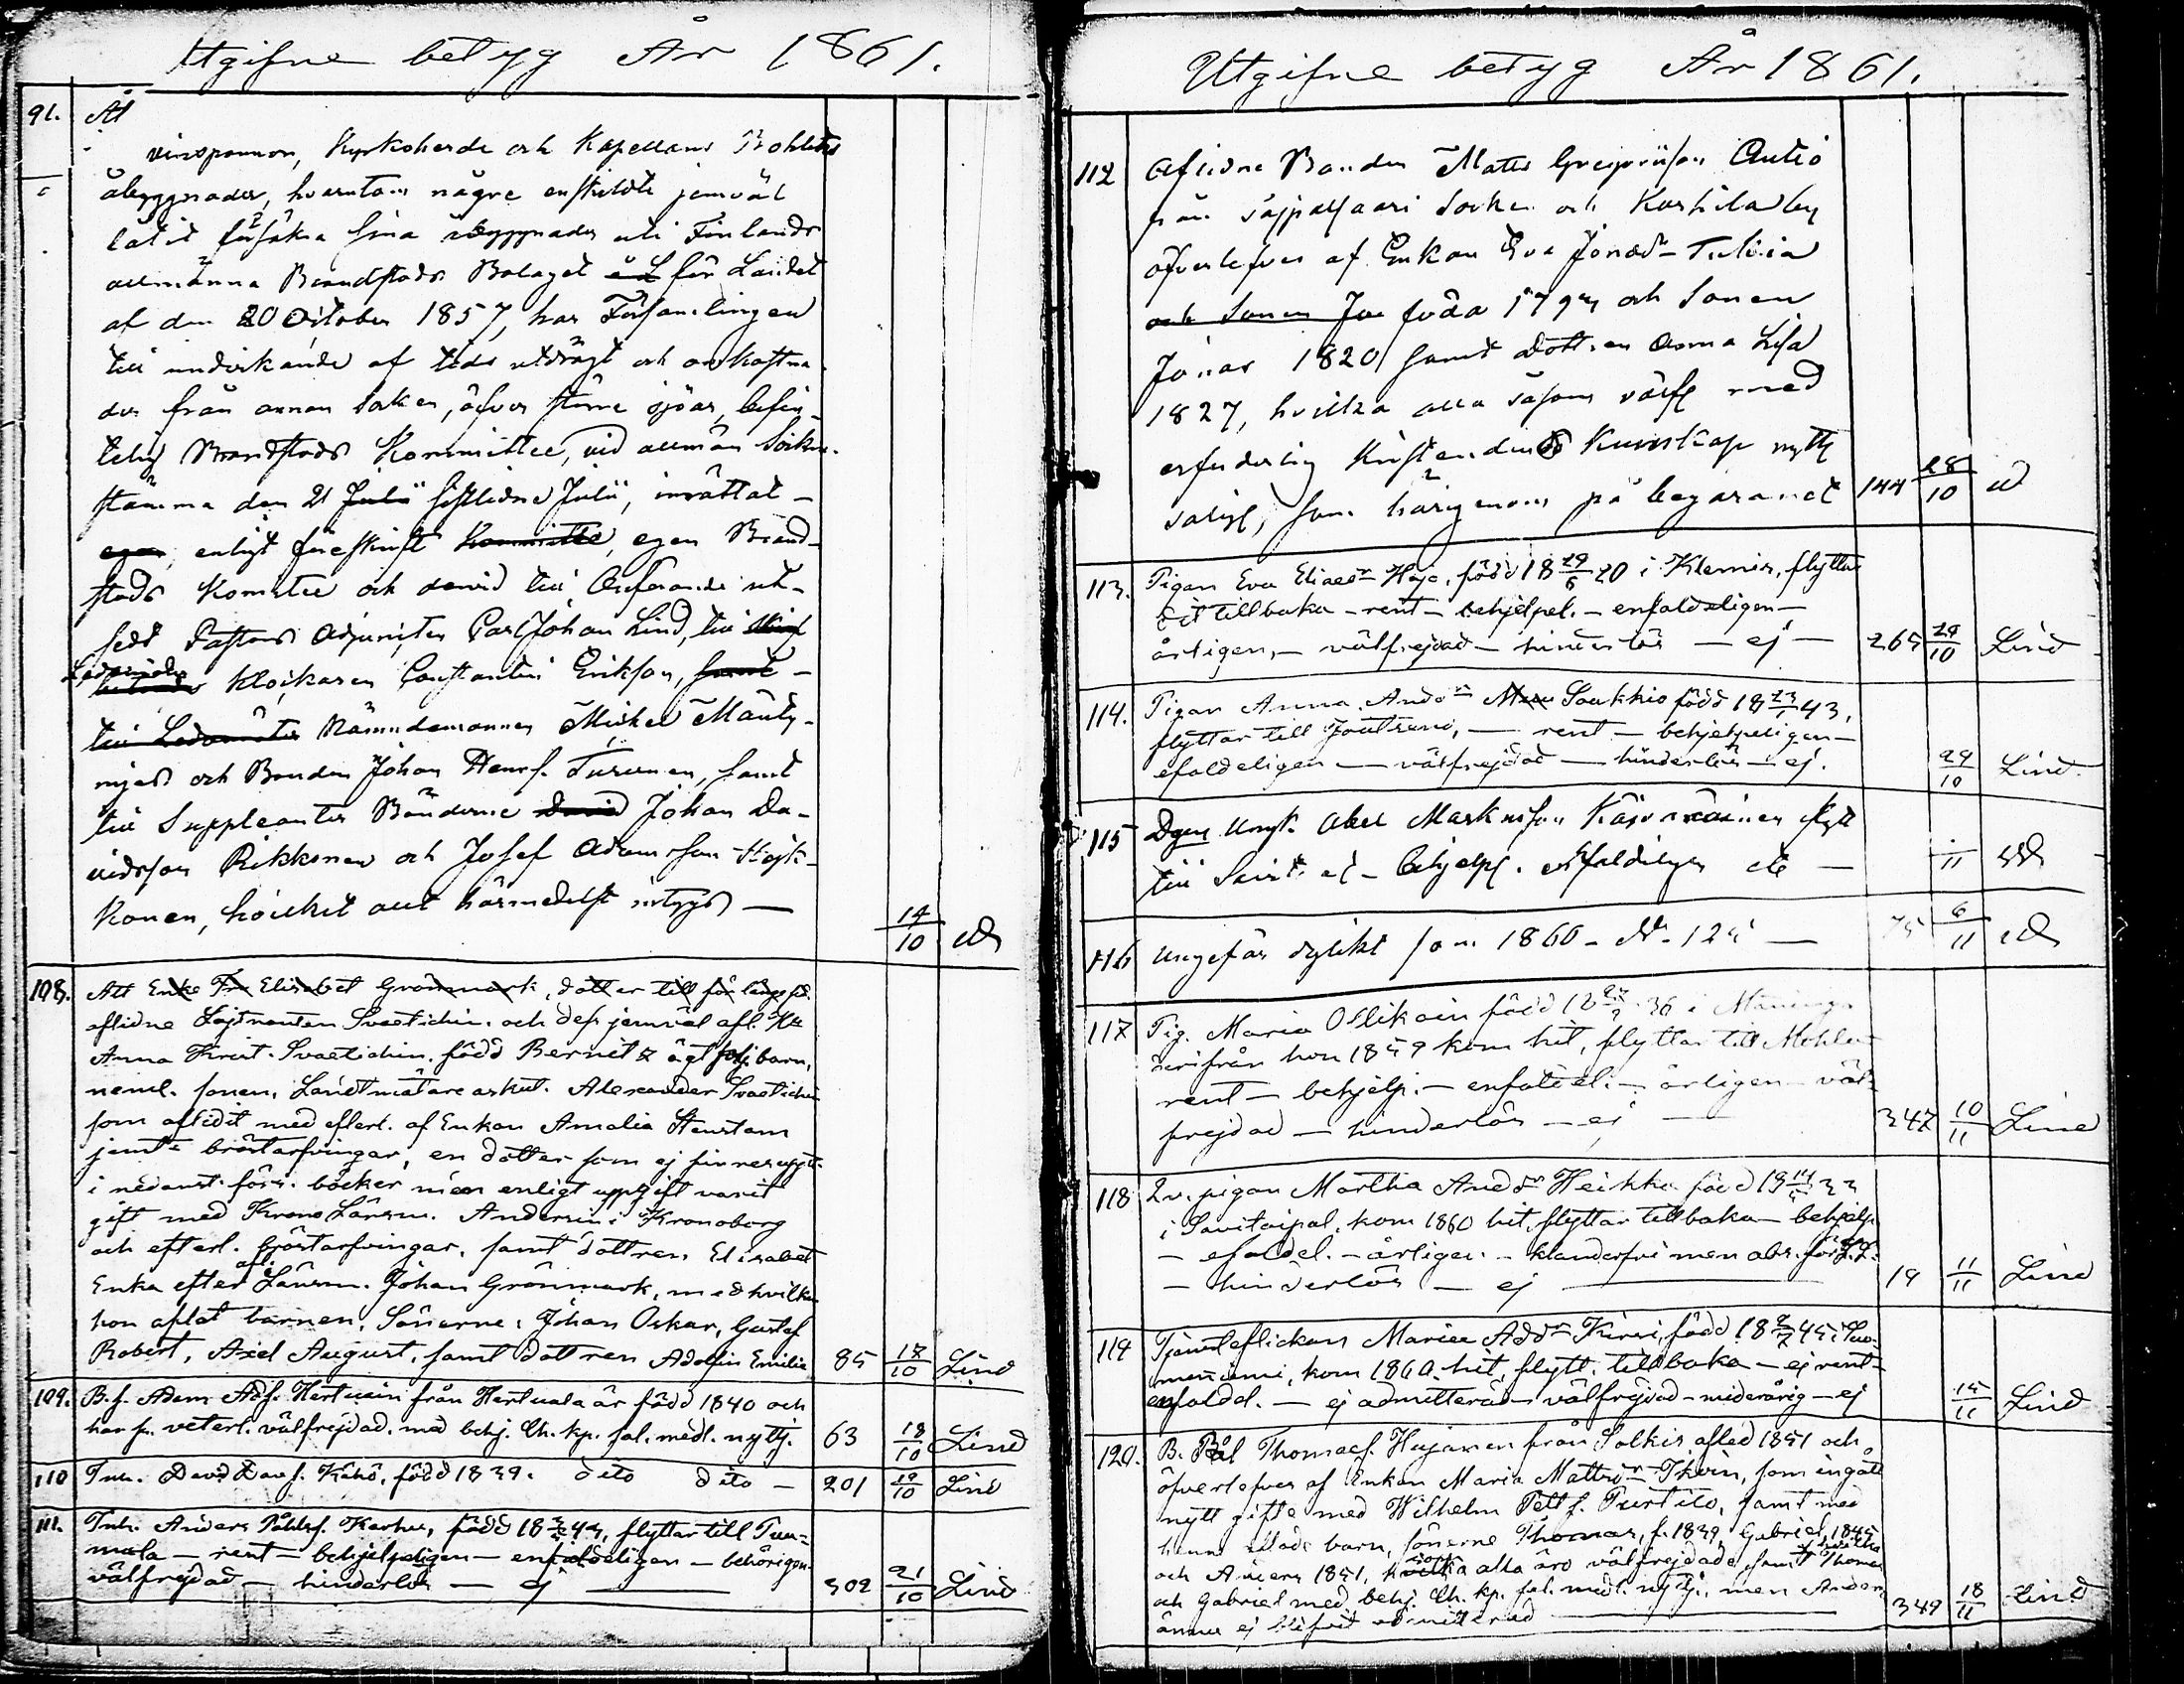 Utgifne betyg År 1861.
91. At
Kyrkoherde och Kapellans Bohlets
åbyggnader, hvarutom någre enskildte jemväl
låtit försäkra sina åbyggnader uti Finlands
allmänna Brandstods Bolaget för Landet
af den 20 October 1857, har Församlingen
till undvikande af tids utdrägt och omkostna
der från annan Socken, öfver större sjöar, befin-
telig Brandstods Kommittee, vid allmän Sockne-
stämma den 21 Julii sistlidne Julii, inrättat -
egen, enligt föreskrift Kommitté, egen Brand-
stods Komitee och dervid till Ordförande ut-
sedt Pastors Adjuncten Carl Johan Lind, till
Ledamöter Klockaren Constantin Erikson, samt -
till Ledamöter Nämndemannen Mickel Mänty-
och Bonden Johan Henrs. Turunen, samt
till Suppleanter Bönderne David Johan Da-
vidsson Rikkonen och Josef Adamsson
konen, hvilket allt härmedelst intygas —
14/10
108. Att Enke Fru Elisabet Grönmark, dotter till för länge sed.
aflidne Löjtnanten Svaetichin och dess jemväl afl.
Anna Krist. Svaetichin, född Bernitz ägt följ. barn,
neml. sonen, Landtmätare auskult. Alexander Svaetichin
som aflidit med efterl. af Enkan Amalia Stenstam
jemte bröstarfvingar, en dotter som ej finnes uppt.
i nedanst. förs. böcker men enligt uppgift varit
gift med Krono Länsm. Andersin i Kronoborg
och efterl. bröstarfvingar, samt dottren Elisabet
Enka efter afl. Länsm. Johan Grönmark, med hvilken
hon aflat barnen, Sönerne: Johan Oskar, Gustaf
Robert, Axel August, samt dottren Adolfin Emilia 85 17/10 Lind
109. B.s. Adam Adf. Hertuain från Hertuala är född 1840 och
har fr. veterl. välfrejdad, med behj. Ch. kp. sal. medl. nyttj. 63 18/10 Lind
110 Inh. David Davs. Kähö, född 1839. dito dito — 201 19/10 Lind
111. Inh. Anders Påhls. Karhu, född 18 43, flyttar till
— rent — behjelpeligen — enfaldeligen — behörigen
välfrejdad — hinderlös — ej — 302 21/10 Lind
Utgifne betyg År 1861.
112 Aflidne Bonden Mats Gregoriison Autio
från Säppälsaari Socken och by
öfverlefves af Enkan Eva Jonasdr
och Sonen Jon föda 179 och Sonen
Jonas 1820 samt dottren Anna Lisa
1827, hvilka alla såsom välfr med
erforderlig Kristendoms Kunskap nyttj
salige, som härigenom på begäran att 144 28/10
113. Pigan Eva Eliaedr född 18 29/6 20 i Klemis, flyttar
dit tillbaka — rent — behjelpel. — enfaldeligen —
årligen, — välfrejdad — hinderlös — ej — 265 29/10 Lind
114. Pigan Anna Andr Soukkio född 18 23 43,
flyttar till Joutseno, — rent — behjelpeligen —
efaldeligen — välfrejdad — hinderlös — ej. 29/10 Lind.
115 Dgen Ungk. Abel Markusson flytt
till Savit. — behjelpl. enfaldeligen etc —
116 ungefär dylikt som 1860 — N. — 75 6/11
117 Pig. Maria Ollikain född 18 36 i
derifrån hon 1859 kom hit, flyttar till Mohla
rent — behjelp. — enfaldel. — årligen — väl-
frejdad — hinderlös — ej — 347 10/11 Lind
118 Qv. pigan Martha Andr Heikka född 18 33
i Savitaipal, kom 1860 hit, flyttar tillbaka — behjelp.
— efaldel. — årligen — klanderfri men
— hinderlös — ej — 19 11/11 Lind
119 Tjensteflickan Maria Addr född 18 45 i Suo-
menniemi, kom 1860 hit, flytt. tillbaka — ej rent —
enfaldel. — ej admitterad — välfrejdad — minderårig — ej 15/11 Lind
120. B. Pål Thomaes. från Solkis, afled 1851 och
öfverlefves af Enkan Maria Mattsdr som ingått
nytt gifte med Wilhelm samt med
henne aflade barn, sönerne Thomas, f. 1839, Gabriel, 1845
och Anders 1851, hvilka alla äro välfrejdade samt Thomas
och Gabriel med behj. Ch. kp. sal. medl. nyttj., men Anders
ännu ej blifvit admitterad — 349 18/11 Lind